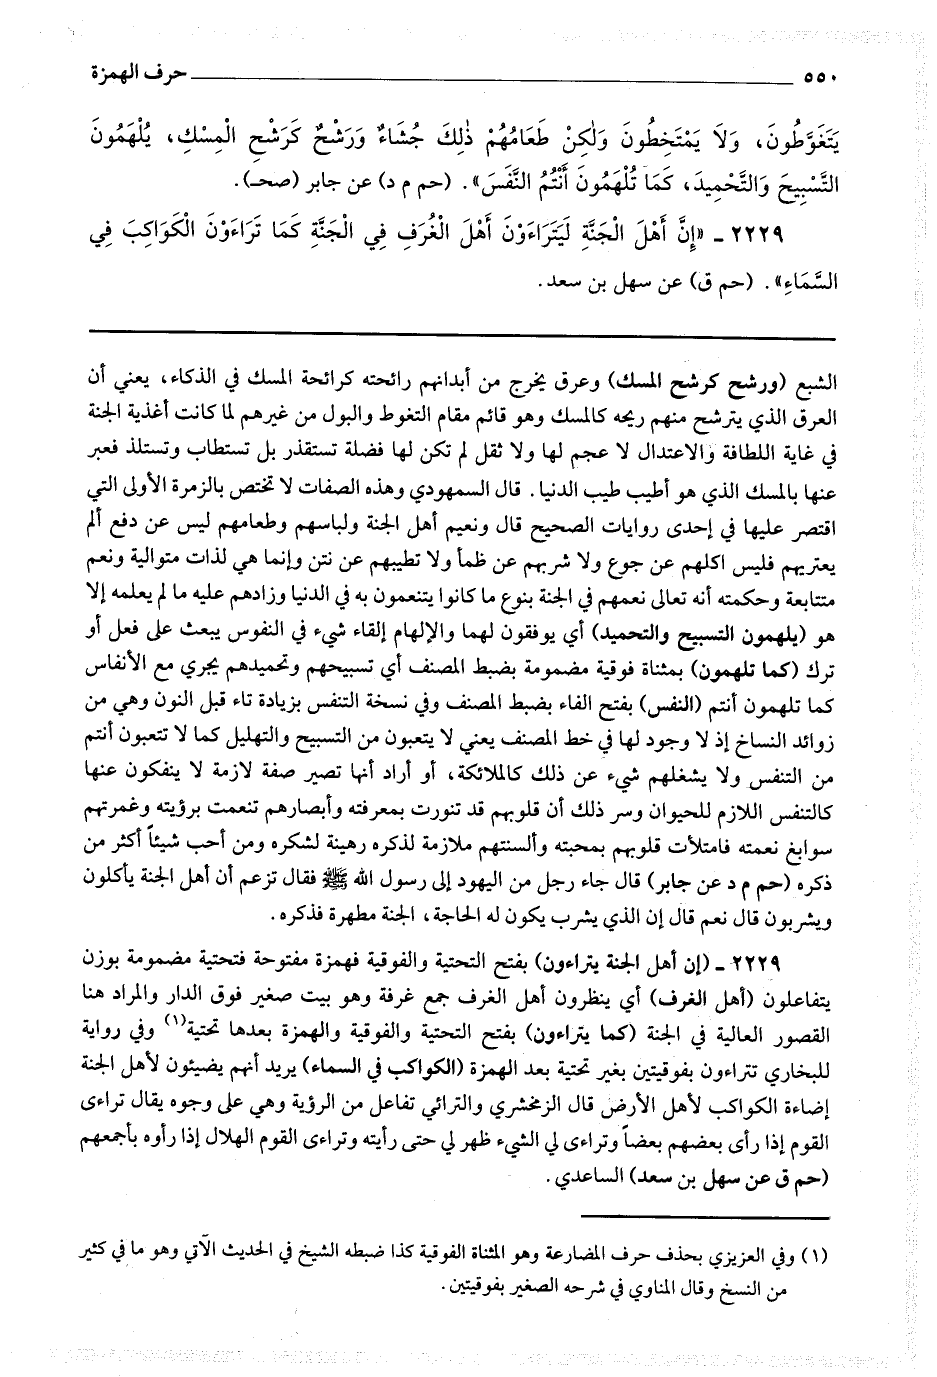 ٥٥٠ حرف الهمزة
يَتَغَوَّطُونَ، وَلَا يَمْتَخِطُونَ وَلٰكِنْ طَعَامُهُمْ ذٰلِكَ جُشَاءٌ وَرَشْحٌ كَرَشْحِ الْمِسْكِ، يُلْهَمُونَ
التَّسْبِيحَ وَالتَّحْمِيدَ، كَمَا تُلْهَمُونَ أَنْتُمُ النَّفَسَ». (حم م د) عن جابر (صحـ).
٢٢٢٩ ـ «إِنَّ أَهْلَ الْجَنَّةِ لَيَتَرَاءَوْنَ أَهْلَ الْغُرَفِ فِي الْجَنَّةِ كَمَا تَرَاءَوْنَ الْكَوَاكِبَ فِي
السَّمَاءِ». (حم ق) عن سهل بن سعد.
الشبع (ورشح كرشح المسك) وعرق يخرج من أبدانهم رائحته كرائحة المسك في الذكاء، يعني أن
العرق الذي يترشح منهم ريحه كالمسك وهو قائم مقام التغوط والبول من غيرهم لما كانت أغذية الجنة
في غاية اللطافة والاعتدال لا عجم لها ولا ثقل لم تكن لها فضلة تستقذر بل تستطاب وتستلذ فعبر
عنها بالمسك الذي هو أطيب طيب الدنيا. قال السمهودي وهذه الصفات لا تختص بالزمرة الأولى التي
اقتصر عليها في إحدى روايات الصحيح قال ونعيم أهل الجنة ولباسهم وطعامهم ليس عن دفع ألم
يعتريهم فليس اكلهم عن جوع ولا شربهم عن ظمأ ولا تطيبهم عن نتن وإنما هي لذات متوالية ونعم
متتابعة وحكمته أنه تعالى نعمهم في الجنة بنوع ما كانوا يتنعمون به في الدنيا وزادهم عليه ما لم يعلمه إلا
هو (يلهمون التسبيح والتحميد) أي يوفقون لهما والإلهام إلقاء شيء في النفوس يبعث على فعل أو
ترك (كما تلهمون) بمثناة فوقية مضمومة بضبط المصنف أي تسبيحهم وتحميدهم يجري مع الأنفاس
كما تلهمون أنتم (النفس) بفتح الفاء بضبط المصنف وفي نسخة التنفس بزيادة تاء قبل النون وهي من
زوائد النساخ إذ لا وجود لها في خط المصنف يعني لا يتعبون من التسبيح والتهليل كما لا تتعبون أنتم
من التنفس ولا يشغلهم شيء عن ذلك كالملائكة، أو أراد أنها تصير صفة لازمة لا ينفكون عنها
كالتنفس اللازم للحيوان وسر ذلك أن قلوبهم قد تنورت بمعرفته وأبصارهم تنعمت برؤيته وغمرتهم
سوابغ نعمته فامتلأت قلوبهم بمحبته وألسنتهم ملازمة لذكره رهينة لشكره ومن أحب شيئاً أكثر من
ذكره (حم م د عن جابر) قال جاء رجل من اليهود إلى رسول الله ﷺ فقال تزعم أن أهل الجنة يأكلون
ويشربون قال نعم قال إن الذي يشرب يكون له الحاجة، الجنة مطهرة فذكره.
٢٢٢٩ ـ (إن أهل الجنة يتراءون) بفتح التحتية والفوقية فهمزة مفتوحة فتحتية مضمومة بوزن
يتفاعلون (أهل الغرف) أي ينظرون أهل الغرف جمع غرفة وهو بيت صغير فوق الدار والمراد هنا
القصور العالية في الجنة (كما يتراءون) بفتح التحتية والفوقية والهمزة بعدها تحتية(١) وفي رواية
للبخاري تتراءون بفوقيتين بغير تحتية بعد الهمزة (الكواكب في السماء) يريد أنهم يضيئون لأهل الجنة
إضاءة الكواكب لأهل الأرض قال الزمخشري والترائي تفاعل من الرؤية وهي على وجوه يقال تراءى
القوم إذا رأى بعضهم بعضاً وتراءى لي الشيء ظهر لي حتى رأيته وتراءى القوم الهلال إذا رأوه بأجمعهم
(حم ق عن سهل بن سعد) الساعدي.
(١) وفي العزيزي بحذف حرف المضارعة وهو المثناة الفوقية كذا ضبطه الشيخ في الحديث الآتي وهو ما في كثير
من النسخ وقال المناوي في شرحه الصغير بفوقيتين.